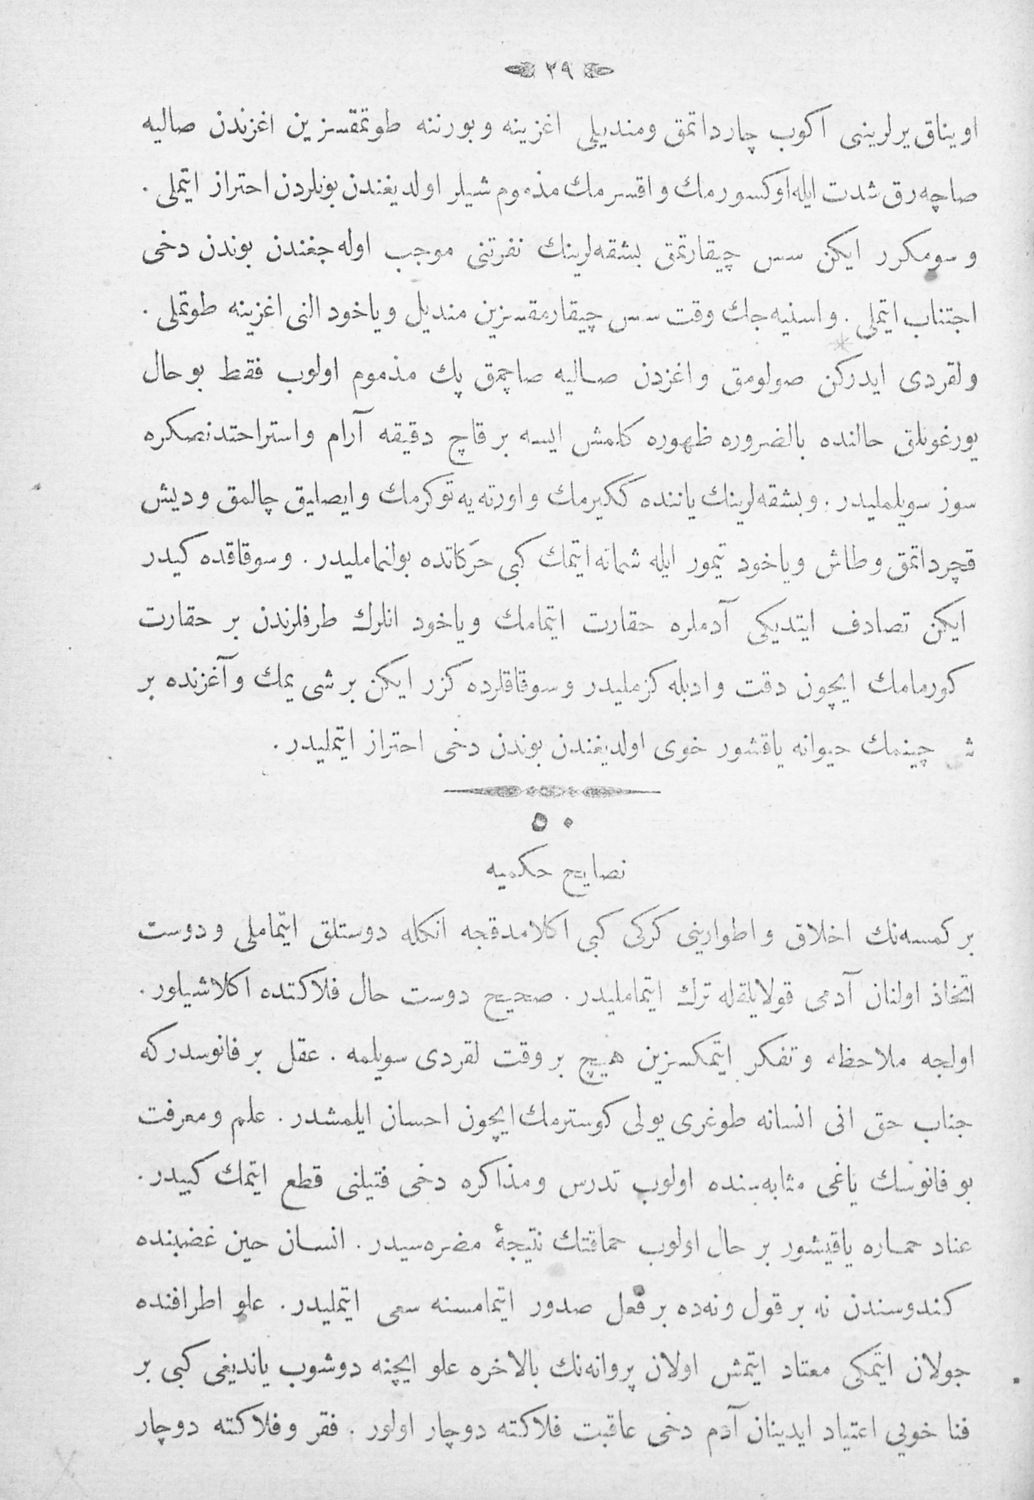 ٣٩
اويناق يرلرينى اكوب چارداتمق ومنديلى اغزينه وبورننه طوتمقسزين اغزندن صاليه
صاچه‌رق شدت ايله اوكسورمك واقسرمك مذموم شيلر اولديغندن بونلردن احتراز ايتملى .
و سومكرر ايكن سس چيقارتمق بشقه‌لرينك نفرتنى موجب اوله‌جغندن بوندن دخى
اجتناب ايتملى . واسنيه‌جك وقت سس چيقارمقسزين منديل وياخود النى اغزينه طوتملى .
ولقردى ايدركن صولومق واغزدن صاليه صاچمق پك مذموم اولوب فقط بوحال
يورغونلق حالنده بالضروره ظهوره كلمش ايسه بر قاچ دقيقه آرام واستراحتدنصكره
سوز سويلمليدر . وبشقه‌لرينك ياننده ككيرمك واورته‌يه توكرمك وايصليق چالمق وديش
قچرداتمق وطاش وياخود تيمور ايله شماته ايتمك كبى حركاتده بولنماميدر . وسوقاقده كيدر
ايكن تصادف ايتديكى آدملره حقارت ايتمامك وياخود انلرك طرفلرندن بر حقارت
كورمامك ايچون دقت وادبله كزمليدر وسوقاقلرده كزر ايكن بر شى يمك وآغزنده بر
چينمك حيوانه ياقشور خوى اولديغندن بوندن دخى احتراز ايتمليدر .
٥٠
نصايح حكميه
بر كمسه‌نك اخلاق واطوارينى كركى كبى اكلامدقجه انكله دوستلق ايتماملى ودوست
اتخاذ اولنان آدمى قولايلقله ترك ايتمامليدر . صحيح دوست حال فلاكتده اكلاشيلور .
اولجه ملاحظه وتفكر ايتمكسزين هيچ بر وقت لقردى سويلمه . عقل بر فانوسدركه
جناب حق انى انسانه طوغرى يولى كوسترمك ايچون احسان ايلمشدر . علم ومعرفت
بو فانوسك ياغى مثابه‌سنده اولوب تدرس ومذاكره دخى فتيلنى قطع ايتمك كبيدر .
عناد حماره ياقيشور بر حال اولوب حماقتك نتيجۀ مضره‌سيدر . انسان حين غضبنده
كندوسندن نه بر قول ونه‌ده بر فعل صدور ايتمامسنه سعى ايتمليدر . علو اطرافنده
جولان ايتمكى معتاد ايتمش اولان پروانه‌نك بالاخره علو ايچنه دوشوب يانديغى كبى بر
فنا خويى اعتياد ايدينان آدم دخى عاقبت فلاكته دوچار اولور . فقر وفلاكته دوچار